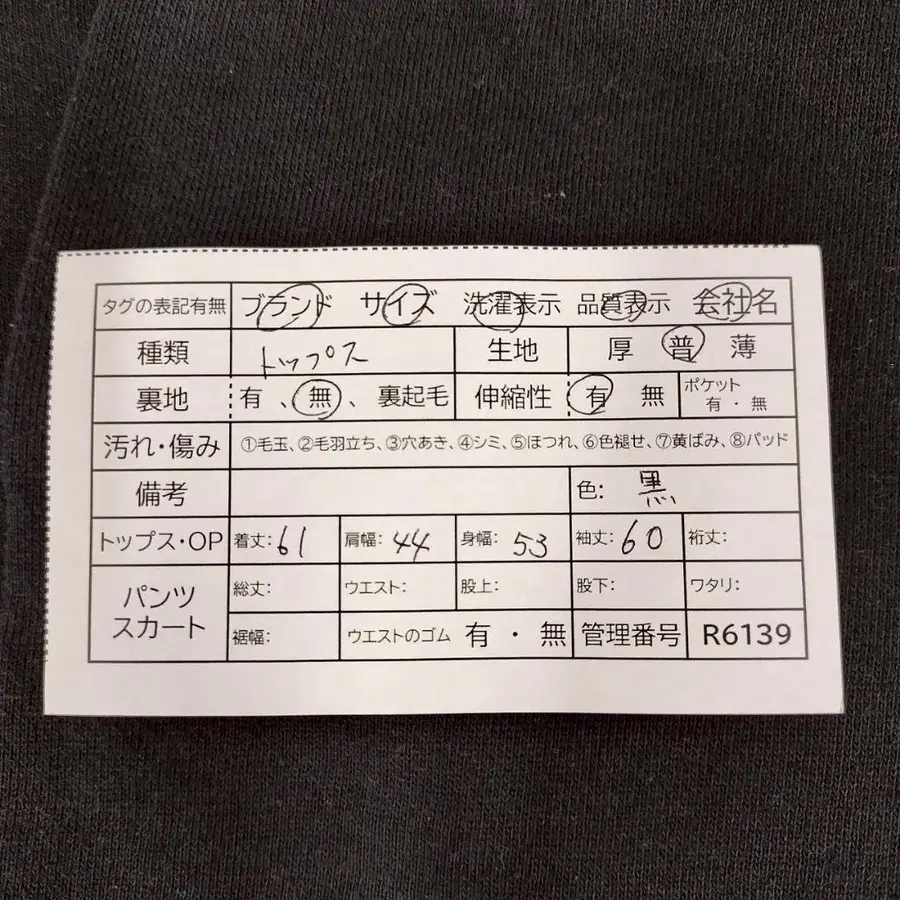 タグの表記有無 ブランド サイズ 洗濯表示 品質表示 会社名
種類 トップス 生地 厚 普 薄
裏地 有 、無 、裏起毛 伸縮性 有 無 ポケット 有・無
汚れ・傷み ①毛玉、②毛羽立ち、③穴あき、④シミ、⑤ほつれ、⑥色褪せ、⑦黄ばみ、⑧パッド
備考 色: 黒
トップス・OP 着丈:61 肩幅:44 身幅:53 袖丈:60 裄丈:
パンツ スカート 総丈: ウエスト: 股上: 股下: ワタリ:
裾幅: ウエストのゴム 有・無 管理番号 R6139